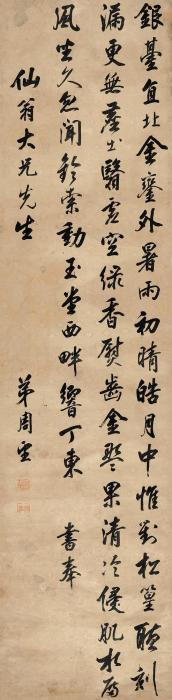 銀臺直北金鑾外暑雨初晴皓月中惟對松篁聽刻
漏更無塵土翳虛空綠香熨齒金盤果清冷侵肌水殿
風坐久忽聞鈴索動玉堂西畔響丁東　書奉
仙翁大兄先生
弟周雲